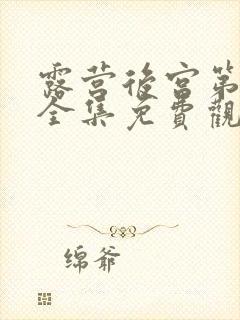 露营後宫第
全集免費觀
绵爷